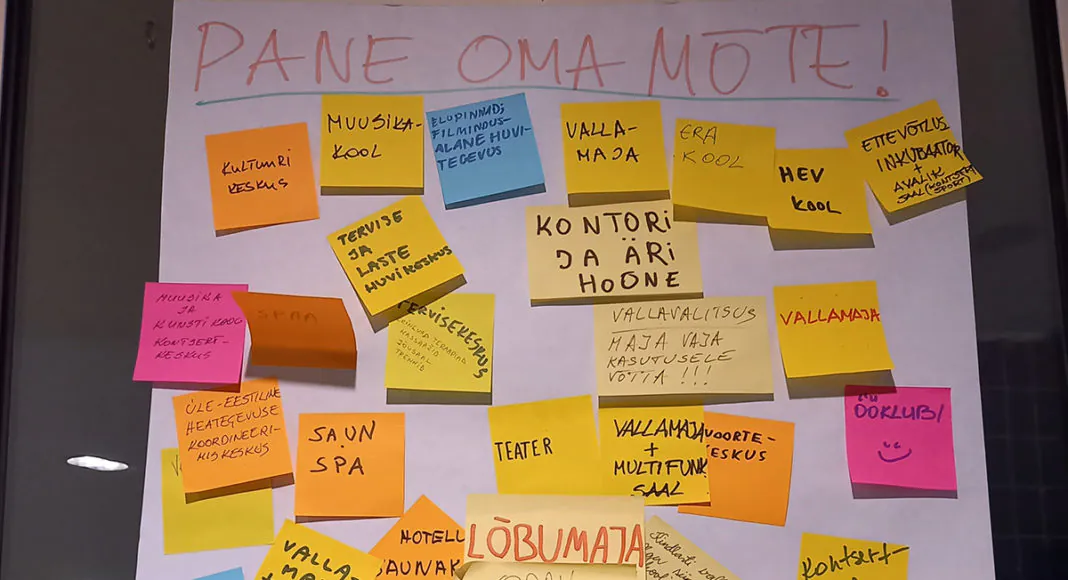 PANE OMA MÕTE!
KULTUURI
KESKUS
MUUSIKA-
KOOL
ELUPINNAD;
FILMINDUS-
ALANE HUVI-
TEGEVUS
VALLA-
MAJA
ERA
KOOL
HEV
KOOL
ETTEVÕTLUS
INKUBAATOR
+
AVALIK
SAAL (KONTSERT
SPORT)
TERVISE
JA
LASTE
HUVIKESKUS
KONTORI
JA ÄRI
HOONE
MUUSIKA
JA
KUNSTI KOOL
KONTSERT-
KESKUS
SPAA
TERVISEKESKUS
MASSAAŽID
JÕUSAAL
TRENNID
VALLAVALITSUS
MAJA VAJA
KASUTUSELE
VÕTTA !!!
VALLAMAJA
ÜLE-EESTILINE
HEATEGEVUSE
KOORDINEERI-
MISKESKUS
SAUN
SPA
TEATER
VALLAMAJA
+
MULTIFUNK
SAAL
NOORTE-
KESKUS
ÖÖKLUBI
VALLA-
MAJA
+
HOTELL
SAUNAK
LÕBUMAJA
Kindlasti
Kontsert-